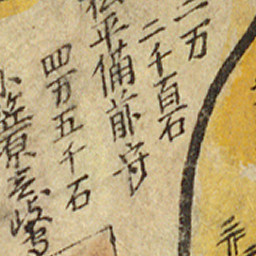 二万
二千百石
松平備前守
四万五千石
小笠原壱岐守